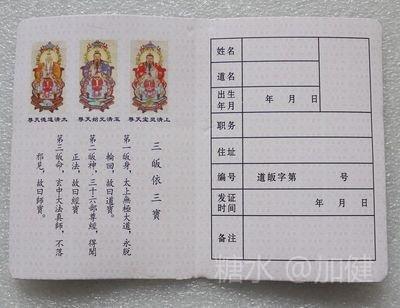 上清灵宝天尊
玉清元始天尊
太清道德天尊
三皈依三寶
第一皈身，太上無極大道，永脱
輪回，故曰道寶。
第二皈神，三十六部尊經，得聞
正法，故曰經寶。
第三皈命，玄中大法真師，不落
邪見，故曰師寶。
姓名
道名
出生年月 年 月 日
职务
住址
编号 道皈字第 号
发证时间 年 月 日
备注
糖水 @加健